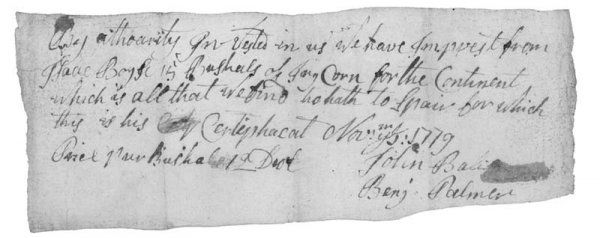 By athoarity In Vested in us We have Imprest from
Isaac Boyse 15 Bushels of Iny Corn for the Continent
which is all that we find he hath to Spair for which
this is his Certiphacat Novm 1779
Price pur Bushal
John
Benj. Palmer